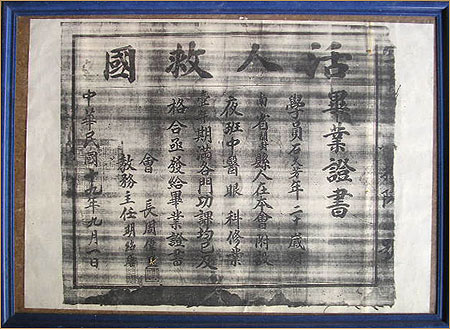 活人救國
畢業證書
學員石 芳年二十 歲
南省 縣人在本會附設
夜班中醫眼科修業
壹年期滿各門功課均已及
格合亟發給畢業證書
會長周
教務主任
中華民國十九年九月一日